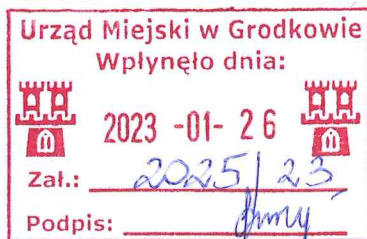 Urząd Miejski w Grodkowie
Wpłynęło dnia:
2023 -01- 26
Zał.: 2025/23
Podpis: